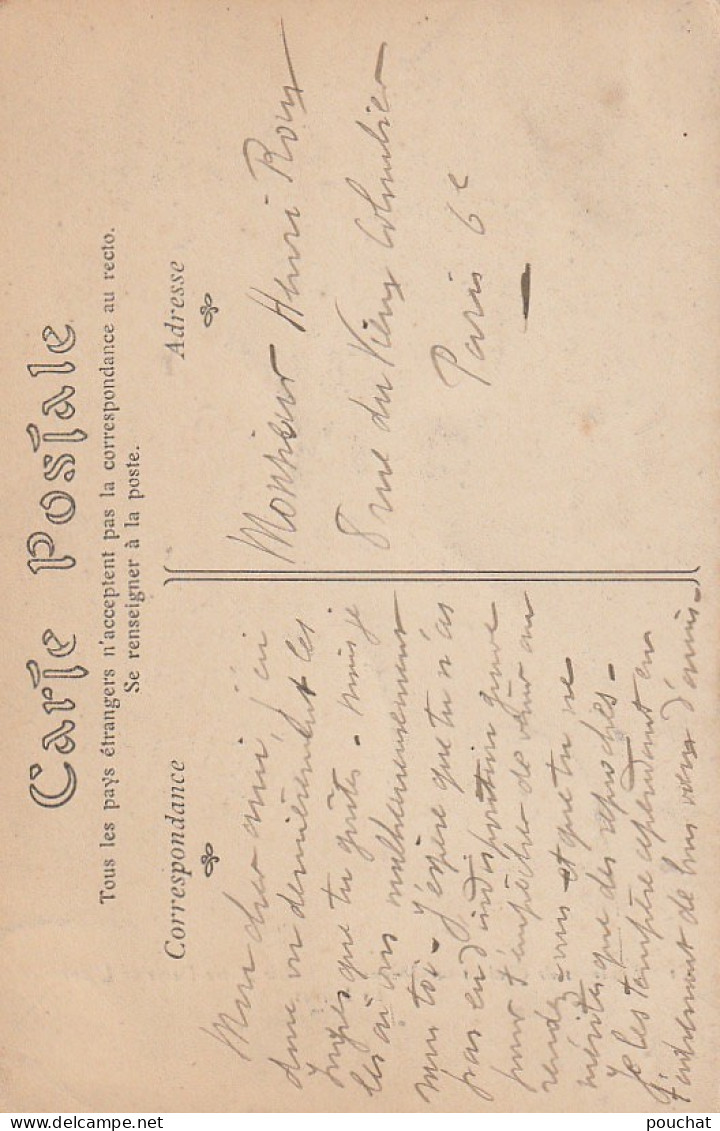 Carte Postale
Tous les pays étrangers n'acceptent pas la correspondance au recto.
Se renseigner à la poste.
Correspondance
Mon cher ami, j'ai
donc vu dernièrement les
Ingres que tu goûtes - mais je
les ai vus malheureusement
sans toi - J'espère que tu n'as
pas eu d'indisposition grave
pour t'empêcher de venir au
rendez-vous et que tu ne
mérites que des reproches -
Je les tempère cependant en
t'adressant de bons vœux d'amis -
Adresse
Monsieur Henri Roux
8 rue du Vieux Colombier
Paris 6e
pouchat